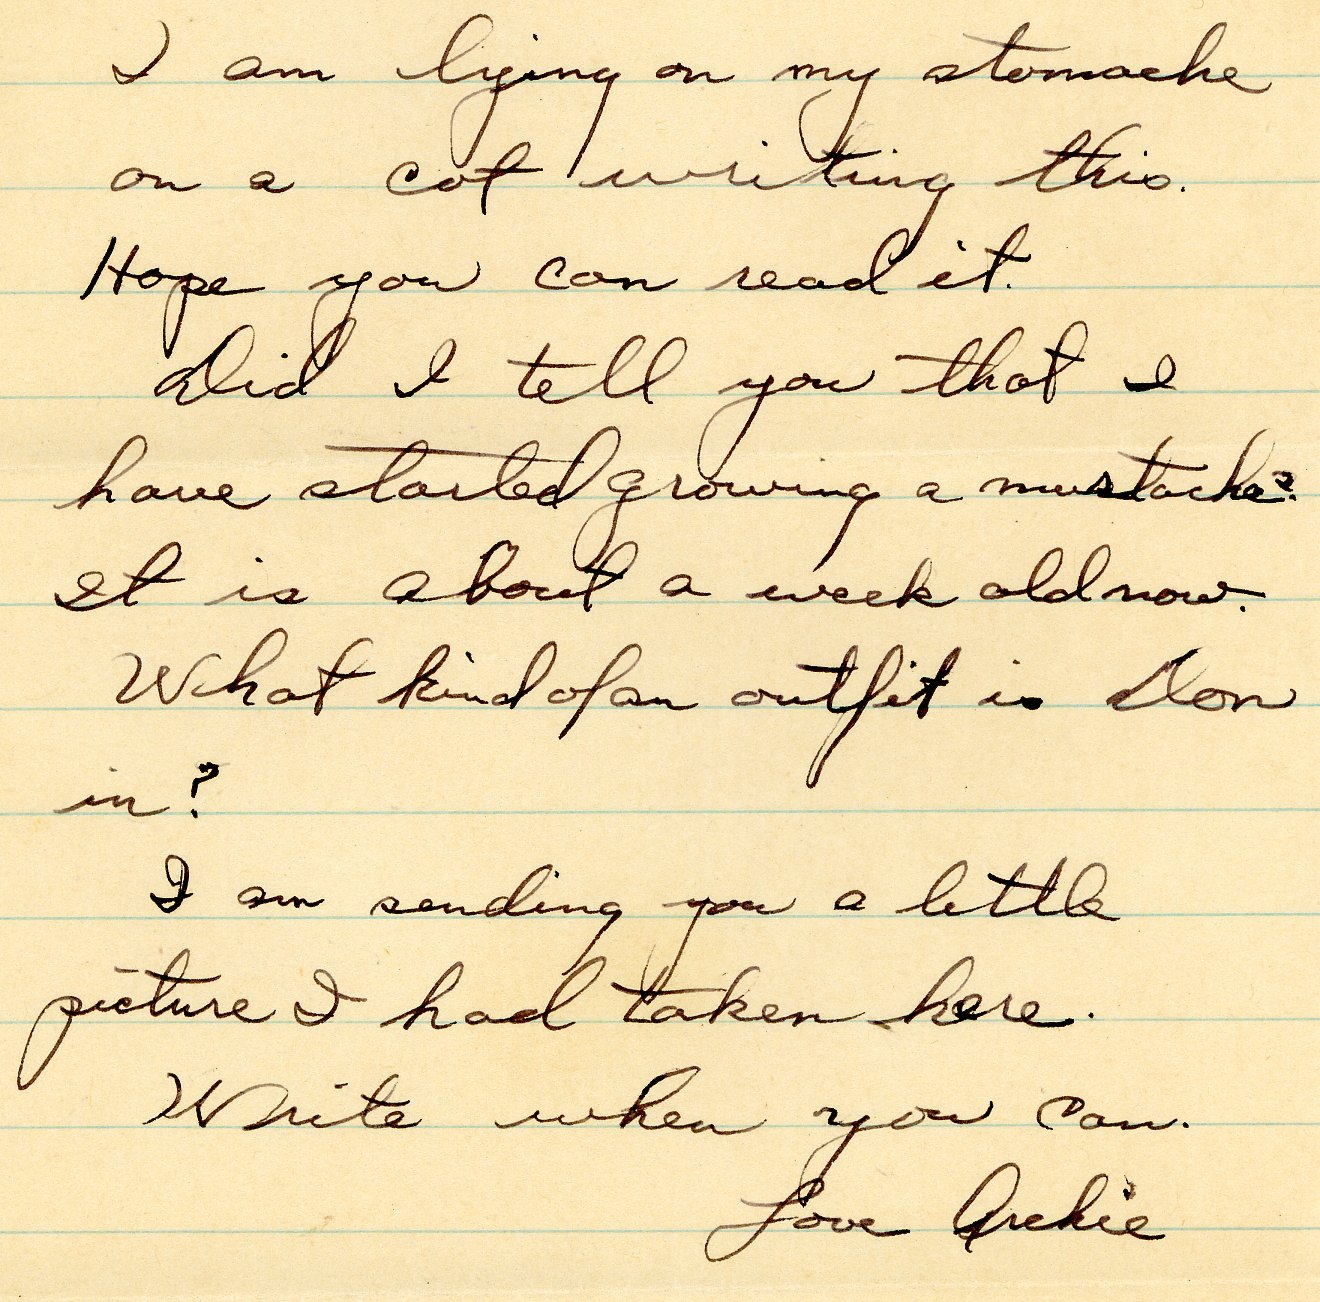 I am lying on my stomache
on a cot writing this.
Hope you can read it.
Did I tell you that I
have started growing a mustache?
It is about a week old now.
What kind of an outfit is Don
in?
I am sending you a little
picture I had taken here.
Write when you can.
Love Archie